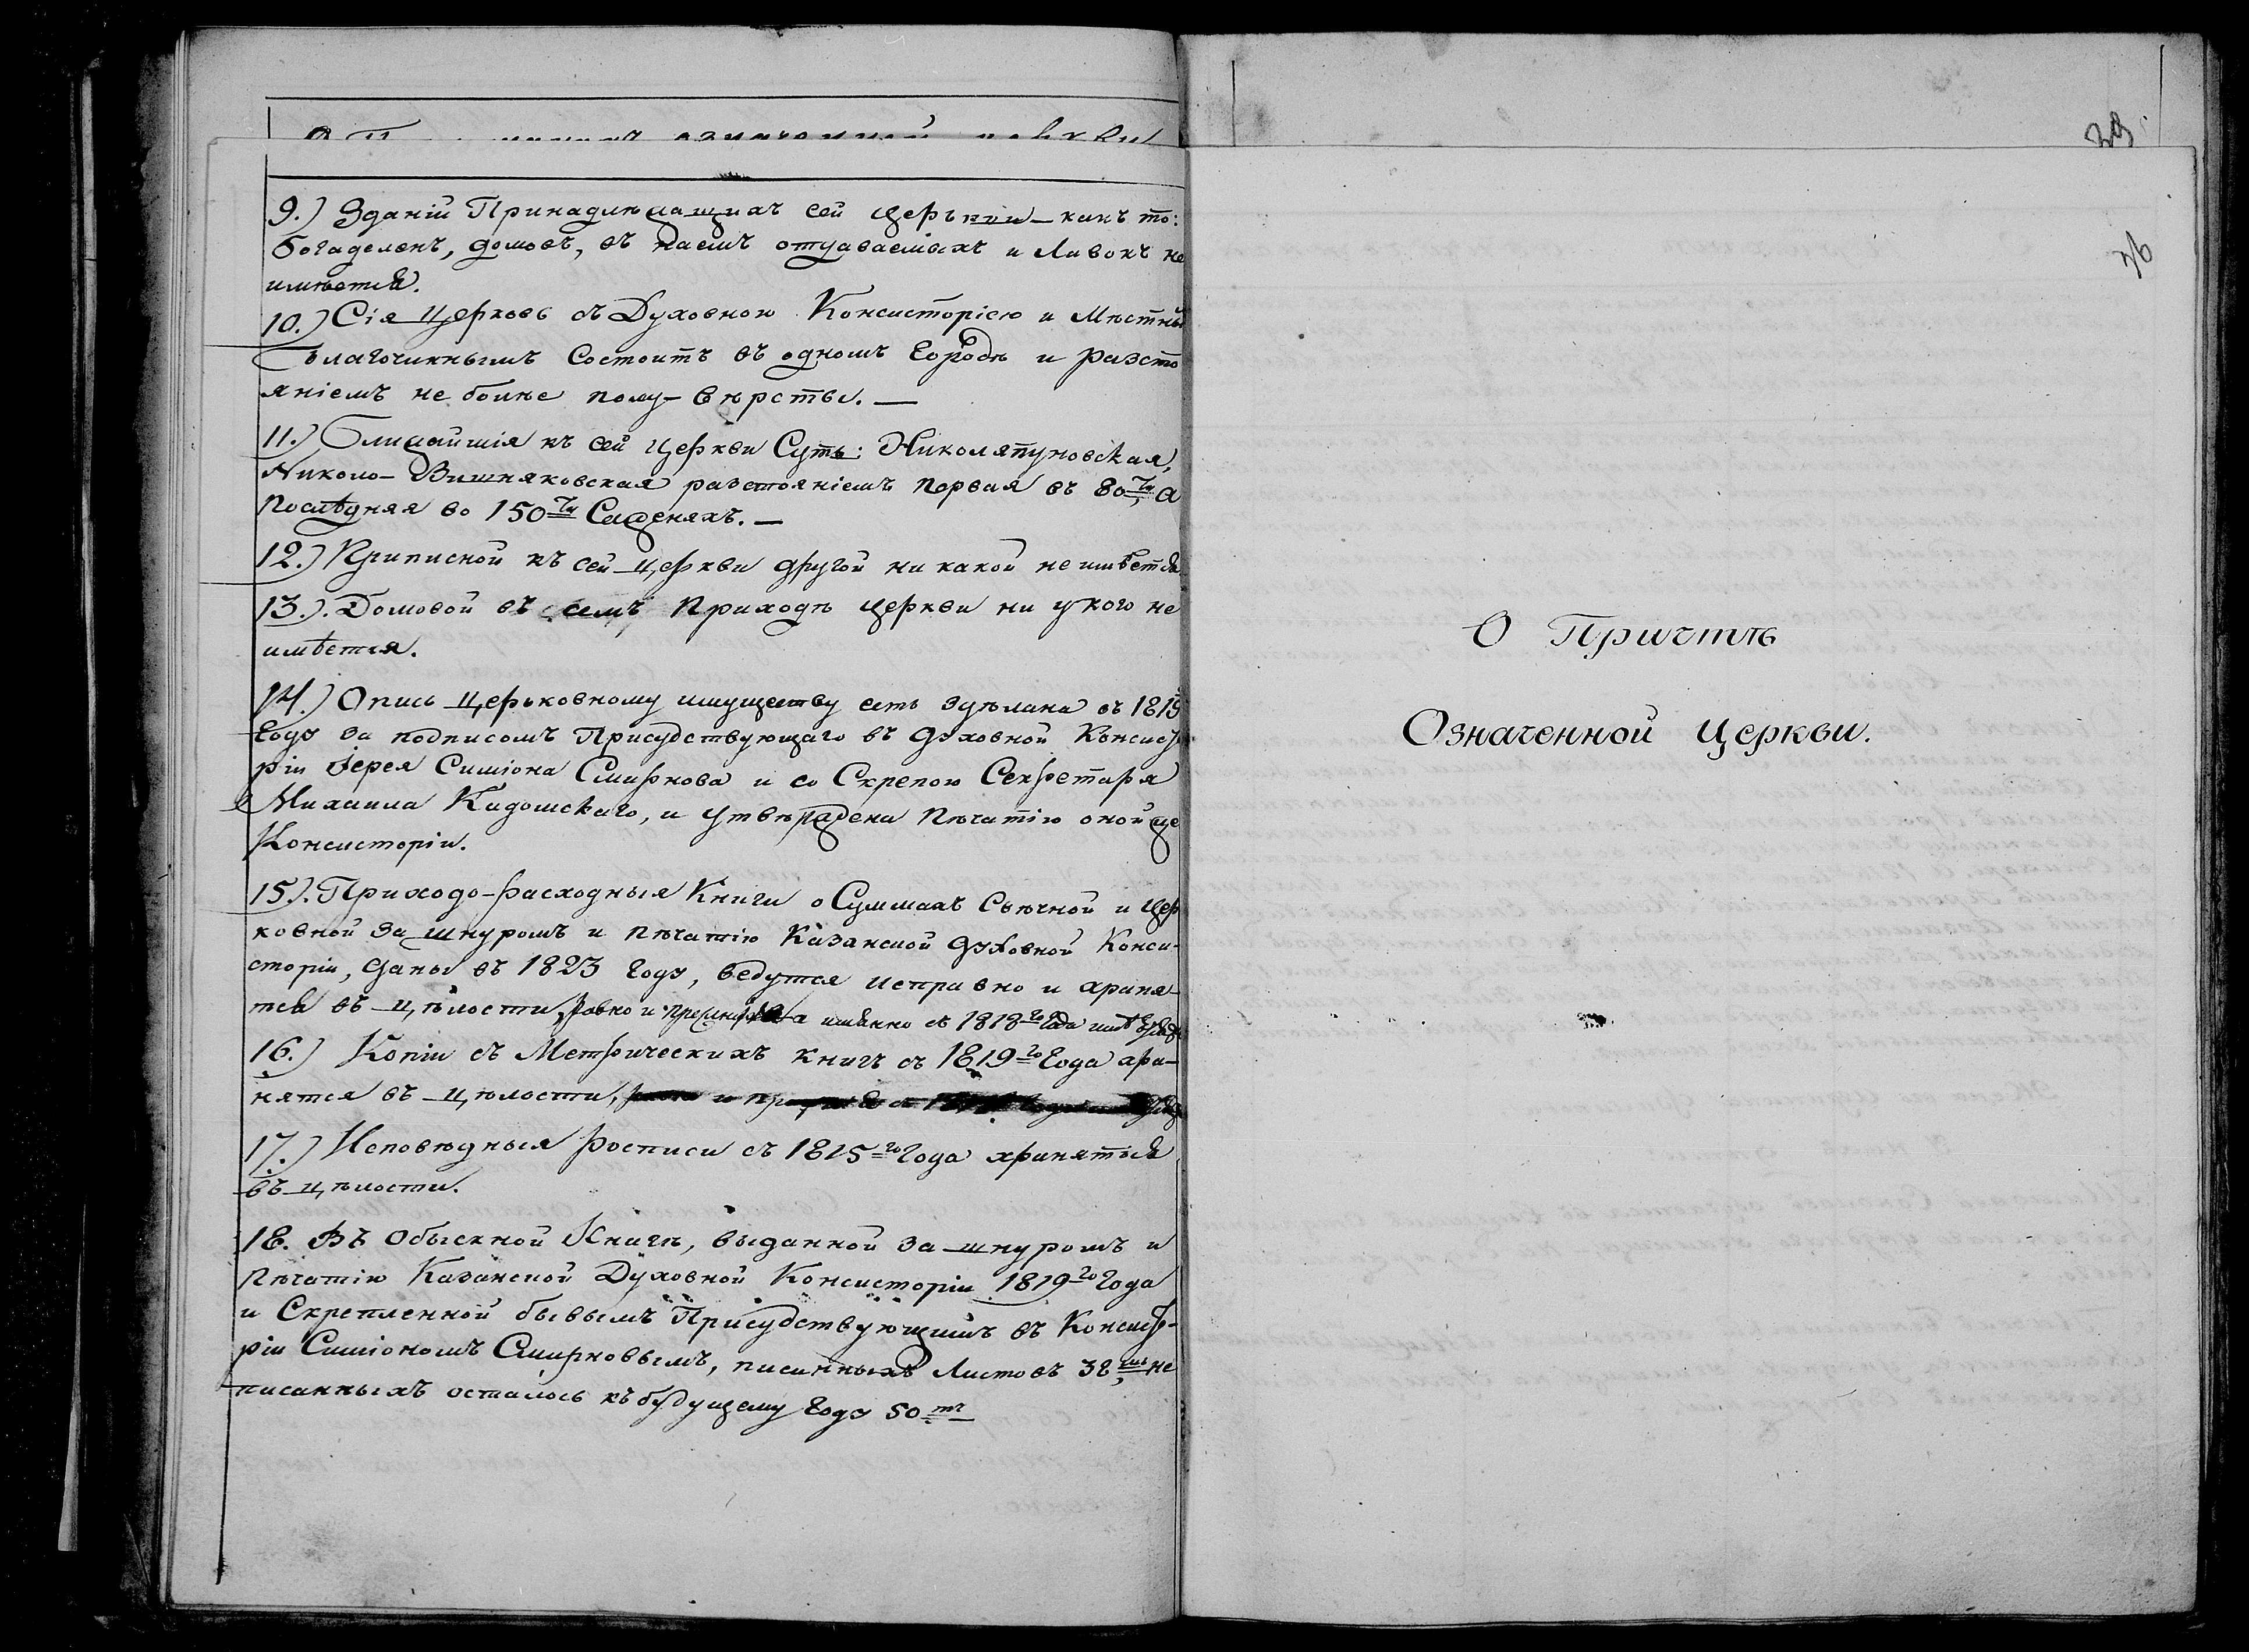 9.) Зданій Принадлежащихъ сей Церькви – какъ то:
богаделенъ, домовъ, въ наемъ отдаваемыхъ и Лавокъ не
имѣется.
10.) Сія Церковь съ Духовною Консисторіею и Мѣстны
Благочиннымъ Состоитъ въ одномъ Городѣ и разсто
яніемъ не болѣе полу-верстѣ. —
11.) Ближайшія къ сей Церкви Суть: Николяпуновская,
Николо-Вишняковская разстояніемъ первая въ 80ти, а
Послѣдняя во 150ти Саженяхъ. —
12.) Приписной къ сей Церкви другой ни какой не имѣется
13.). Домовой въ семъ Приходѣ церкви ни укого не
имѣется.
14.) Опись Церьковному имуществу есть здѣлана въ 1819
Году за подписомъ Присудствующаго въ Духовной Консисто
ріи Іерея Симіона Смирнова и со Скрепою Секретаря
Михаила Кадомскаго, и Утвѣрждена Пѣчатію оной же
Консисторіи.
15). Приходо-расходныя Книги о Суммахъ Свѣчной и Цер
ковной За шнуромъ и Пѣчатію Казанской Духовной Конси-
сторіи, Даны въ 1823 Году, ведутся исправно и храня-
тся въ Цѣлости, Равно и а имянно съ 1818го Года
16.) Копіи съ Метрическихъ книгъ съ 1819го Года хра-
нятся въ Цѣлости,
17.) Исповѣдныя росписи съ 1815го Года хранятся
въ Цѣлости.
18. Въ Обыскной Книгѣ, выданной за шнуромъ и
Пѣчатію Казанской Духовной Консисторіи 1819го Года
и Скрепленной бывымъ Присудствующимъ въ Консисто-
ріи Симіономъ Смирновымъ, писанныхъ Листовъ 38мь не
писанныхъ осталось къ будущему Году 50тъ
29.
76
О Причтѣ
Означенной Церкви.